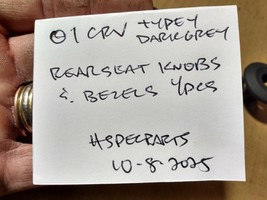 01 CRV TYPE Y
DARKGREY
REARSEAT KNOBS
& BEZELS 4PCS
#SPECPARTS
10-8-2025